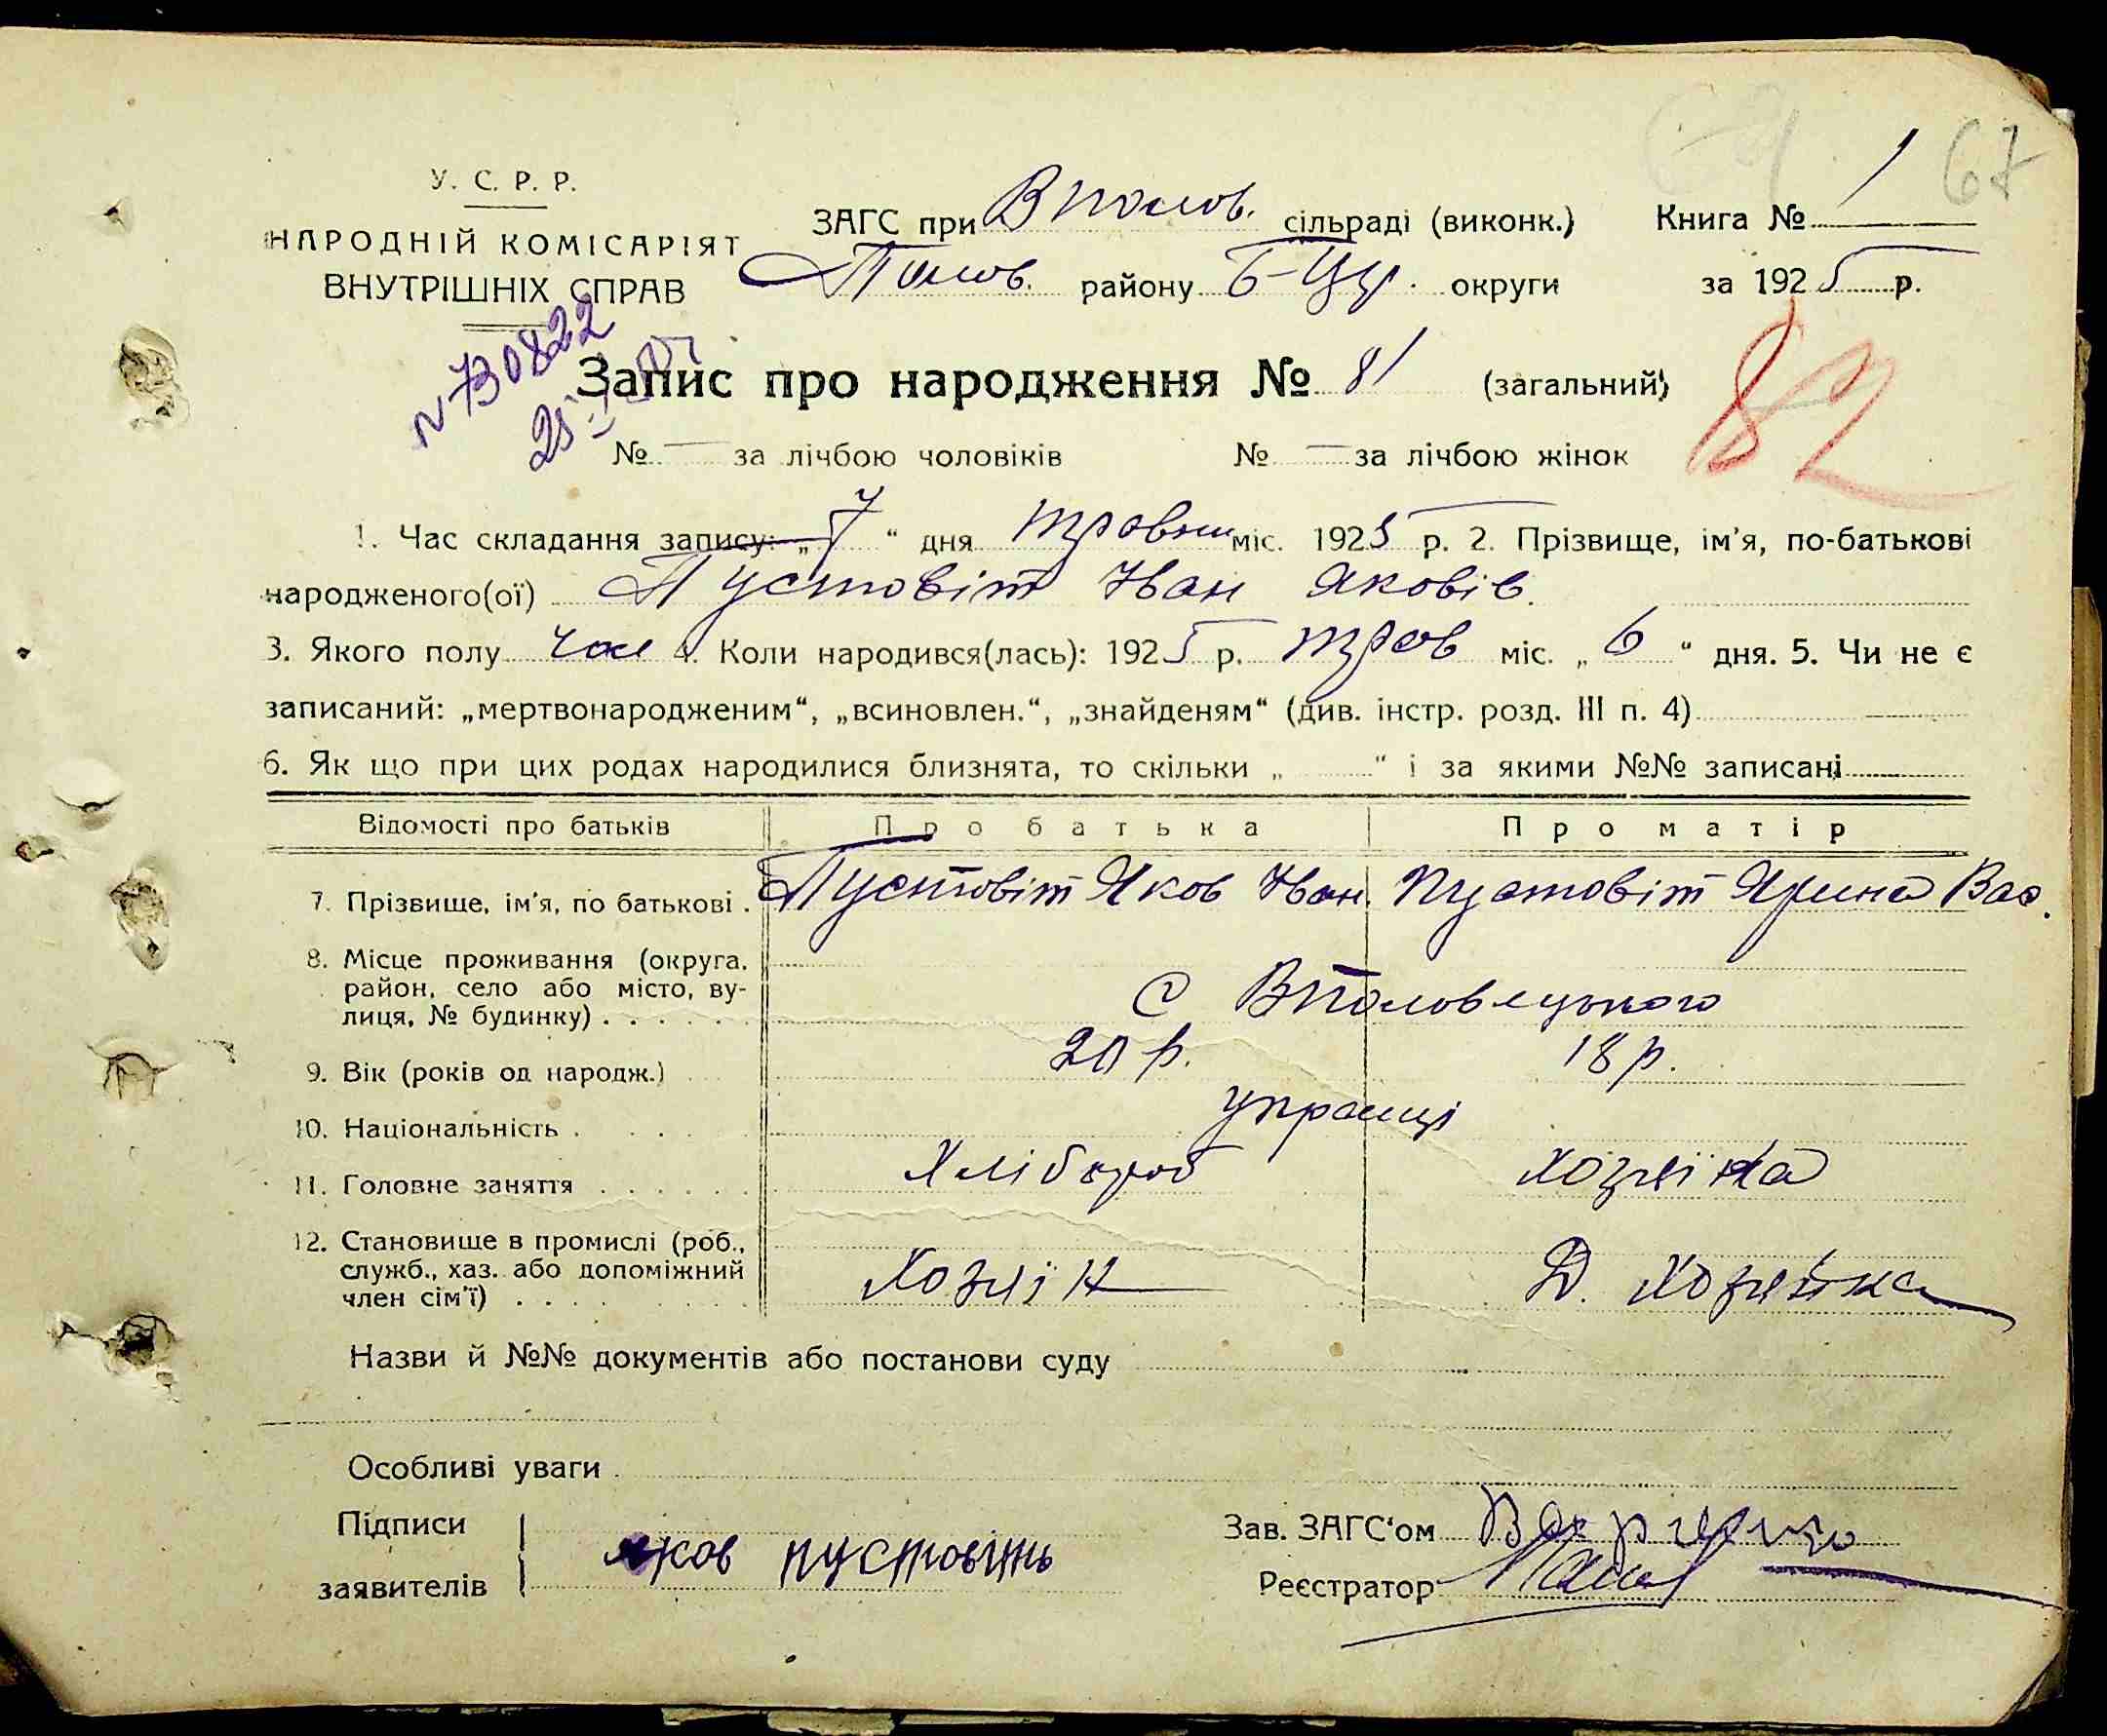 67
У. С. Р. Р.
НАРОДНІЙ КОМІСАРІЯТ
ВНУТРІШНІХ СПРАВ
ЗАГС при В Полов. сільраді (виконк.) Книга № 1
Полов. району Б-Цр. округи за 1925 р.
N 730822
Запис про народження № 81 (загальний)
82
№ — за лічбою чоловіків № — за лічбою жінок
1. Час складання запису: „7“ дня травня міс. 1925 р. 2. Прізвище, ім'я, по-батькові
народженого(ої) Пустовіт Іван Яковів.
3. Якого полу чол 4. Коли народився(лась): 1925 р. трав міс. „6“ дня. 5. Чи не є
записаний: „мертвонародженим“, „всиновлен.“, „знайденям“ (див. інстр. розд. III п. 4)
6. Як що при цих родах народилися близнята, то скільки „ “ і за якими №№ записані
Відомості про батьків Про батька Про матір
7. Прізвище, ім'я, по батькові . Пустовіт Яков Іван. Пустовіт Ярина Вас.
8. Місце проживання (округа,
район, село або місто, ву-
лиця, № будинку) . . . . . . С Вполовецького
9. Вік (років од народж.) 20 р. 18 р.
10. Національність . украінці
11. Головне заняття . . . . . . Хлібороб хозяїка
12. Становище в промислі (роб.,
служб., хаз. або допоміжний
член сім'ї) . . . . Хозяїн Д. Хозяйка
Назви й №№ документів або постанови суду
Особливі уваги
Підписи
заявителів яков пустовить
Зав. ЗАГС'ом
Реєстратор